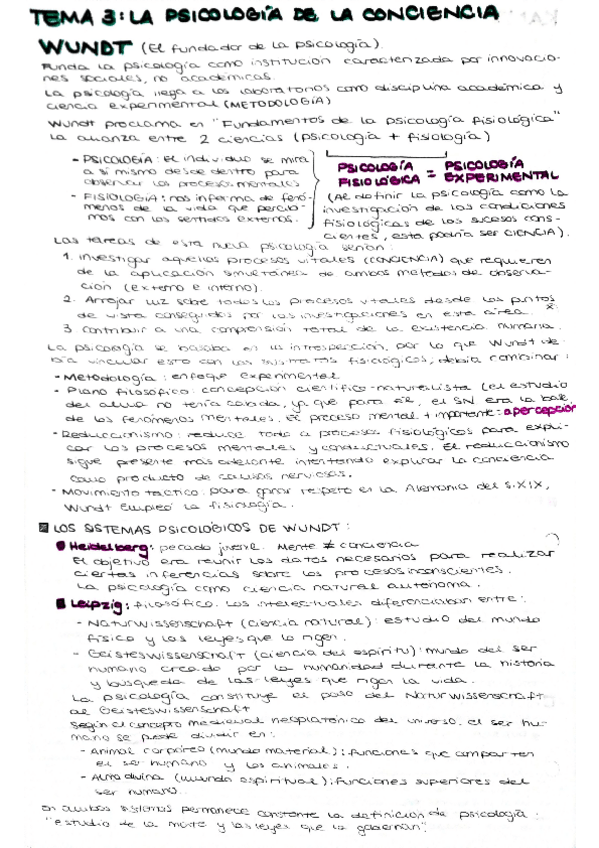 TEMA 3: LA PSICOLOGÍA DE LA CONCIENCIA
WUNDT (El fundador de la psicología).
Funda la psicología como institución caracterizada por innovacio-
nes sociales, no académicas.
La psicología llega a los laboratorios como disciplina académica y
ciencia experimental (METODOLOGÍA)
Wundt proclama en "Fundamentos de la psicología fisiológica"
la alianza entre 2 ciencias (psicología + fisiología)
- PSICOLOGÍA: El individuo se mira
a sí mismo desde dentro para
observar los procesos mentales
- FISIOLOGÍA: nos informa de fenó-
menos de la vida que percibi-
mos con los sentidos externos.
PSICOLOGÍA FISIOLÓGICA = PSICOLOGÍA EXPERIMENTAL
(Al definir la psicología como la
investigación de las condiciones
fisiológicas de los sucesos cons-
cientes, esta podría ser CIENCIA).
Las tareas de esta nueva psicología serían:
1. Investigar aquellos procesos vitales (CONCIENCIA) que requieren
de la aplicación simultánea de ambos métodos de observa-
ción (externo e interno).
2. Arrojar luz sobre todos los procesos vitales desde los puntos
de vista conseguidos por las investigaciones en esta área.
3. Contribuir a una comprensión total de la existencia humana.
La psicología se basaba en la introspección, por lo que Wundt de-
bía vincular esto con los sustratos fisiológicos; debía combinar:
- Metodología: enfoque experimental
- Plano filosófico: concepción científico-naturalista (el estudio
del alma no tenía cabida, ya que para él, el SN era la base
de los fenómenos mentales. El proceso mental + importante: apercepción
- Reduccionismo: reduce todo a procesos fisiológicos para expli-
car los procesos mentales y conductuales. El reduccionismo
sigue presente más adelante intentando explicar la conciencia
como producto de causas nerviosas.
- Movimiento táctico: para ganar respeto en la Alemania del s.XIX,
Wundt empleó la fisiología.
LOS SISTEMAS PSICOLÓGICOS DE WUNDT:
Heidelberg: pecado juvenil. Mente ≠ conciencia
El objetivo era reunir los datos necesarios para realizar
ciertas inferencias sobre los procesos inconscientes.
La psicología como ciencia natural autónoma.
Leipzig: filosófico. Los intelectuales diferenciaban entre:
- Naturwissenschaft (ciencia natural): estudio del mundo
físico y las leyes que lo rigen.
- Geisteswissenschaft (ciencia del espíritu): mundo del ser
humano creado por la humanidad durante la historia
y búsqueda de las leyes que rigen la vida.
La psicología constituye el paso del Naturwissenschaft
al Geisteswissenschaft
Según el concepto medieval neoplatónico del universo, el ser hu-
mano se puede dividir en:
- Animal corpóreo (mundo material): funciones que comparten
el ser humano y los animales.
- Alma divina (mundo espiritual): funciones superiores del
ser humano.
En ambos sistemas permanece constante la definición de psicología:
"estudio de la mente y las leyes que la gobiernan".